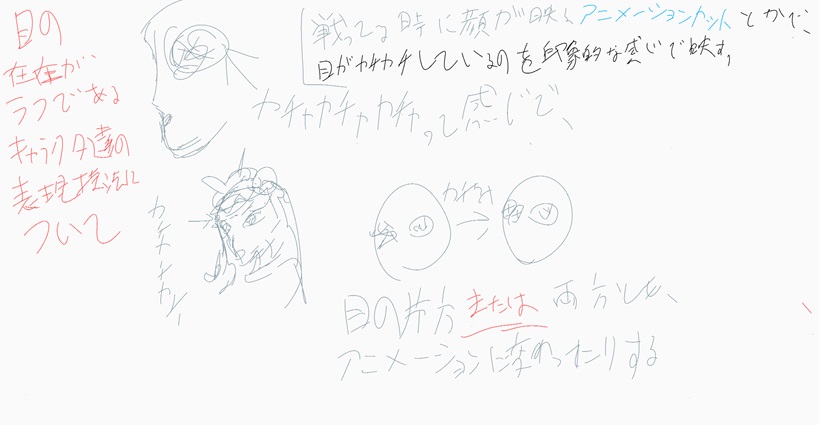 目の
在在が
ラフである
キャラクタ達の
表現技法に
ついて
戦ってる時に顔が映るアニメーションカットとかで、
目がカチカチしているのを印象的な感じで映す。
カチャカチャカチャって感じで、
カチャカチャ
目の片方または両方しか、
アニメーションに変わったりする